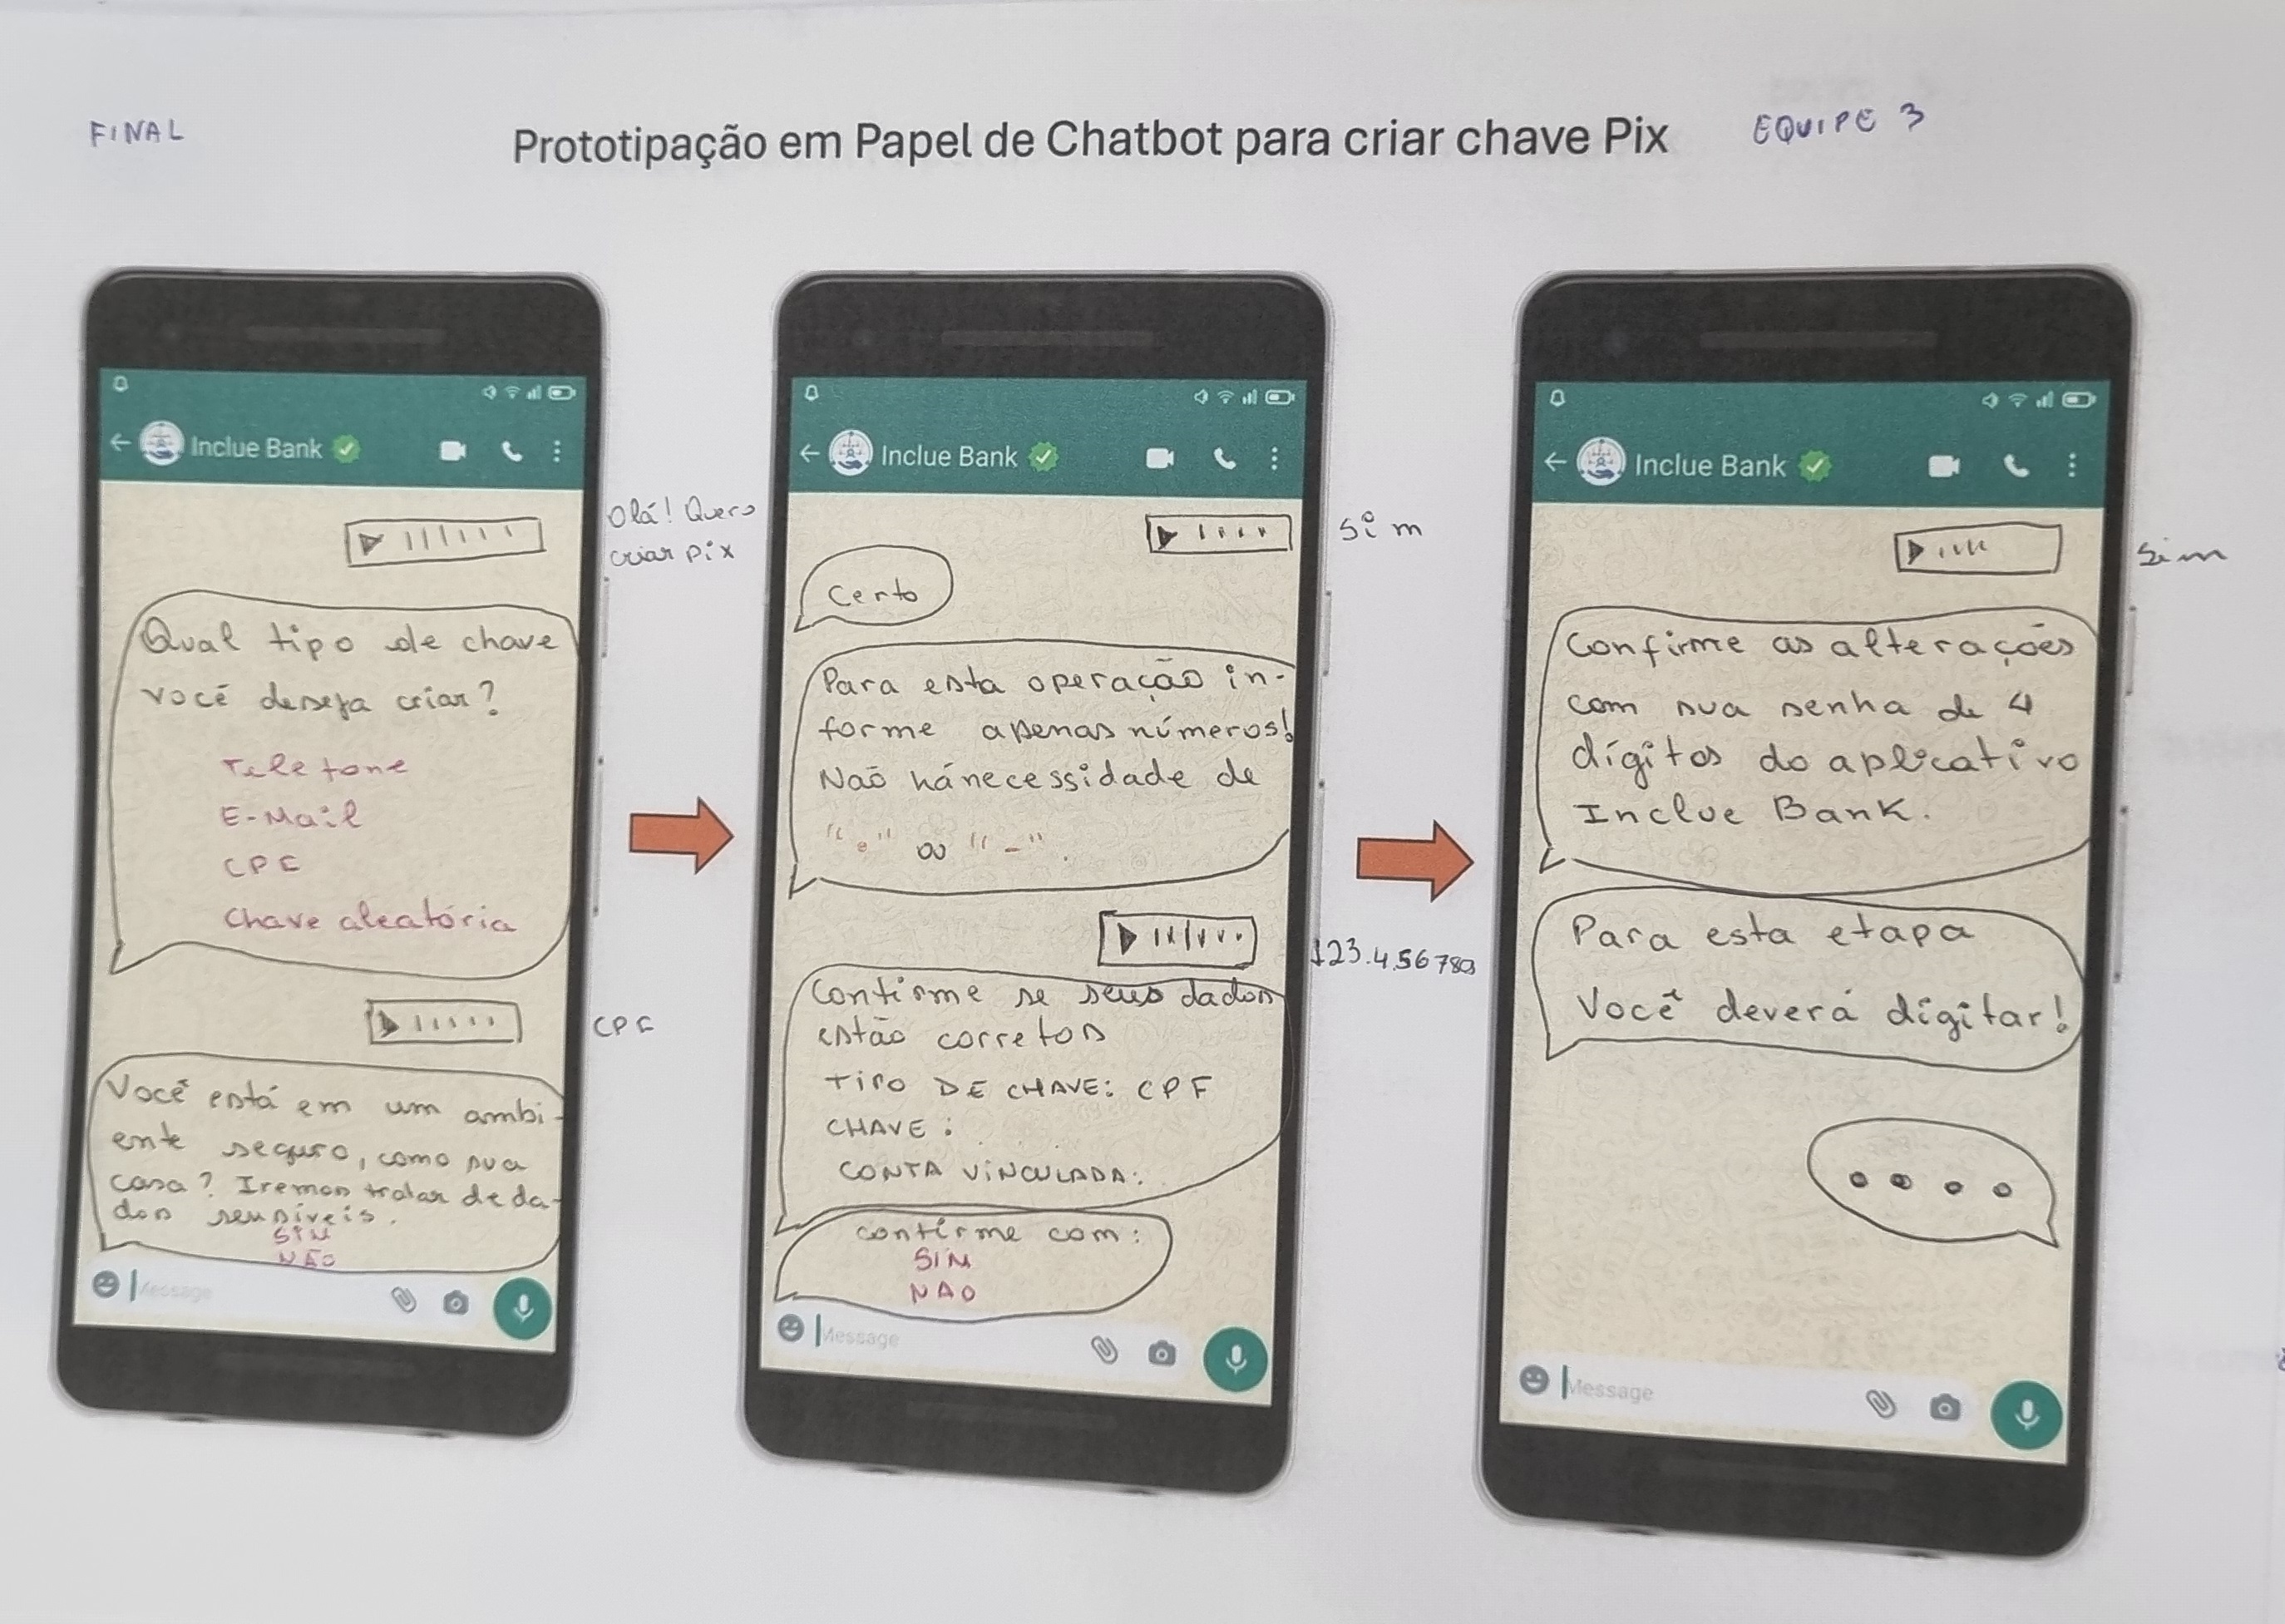 FINAL
Prototipação em Papel de Chatbot para criar chave Pix
EQUIPE 3
Inclue Bank
Olá! Quero
criar pix
Qual tipo de chave
você deseja criar?
Telefone
E-Mail
CPF
Chave aleatória
CPF
Você está em um ambi-
ente seguro, como sua
casa? Iremos tratar de da-
dos sensíveis.
SIM
NÃO
Message
Inclue Bank
Sim
Certo
Para esta operação in-
forme apenas números!
Não há necessidade de
"." ou "-".
123.456789
Confirme se seus dados
estão corretos
TIPO DE CHAVE: CPF
CHAVE:
CONTA VINCULADA:
Confirme com:
SIM
NAO
Message
Inclue Bank
Sim
Confirme as alterações
com sua senha de 4
dígitos do aplicativo
Inclue Bank.
Para esta etapa
Você deverá digitar!
Message